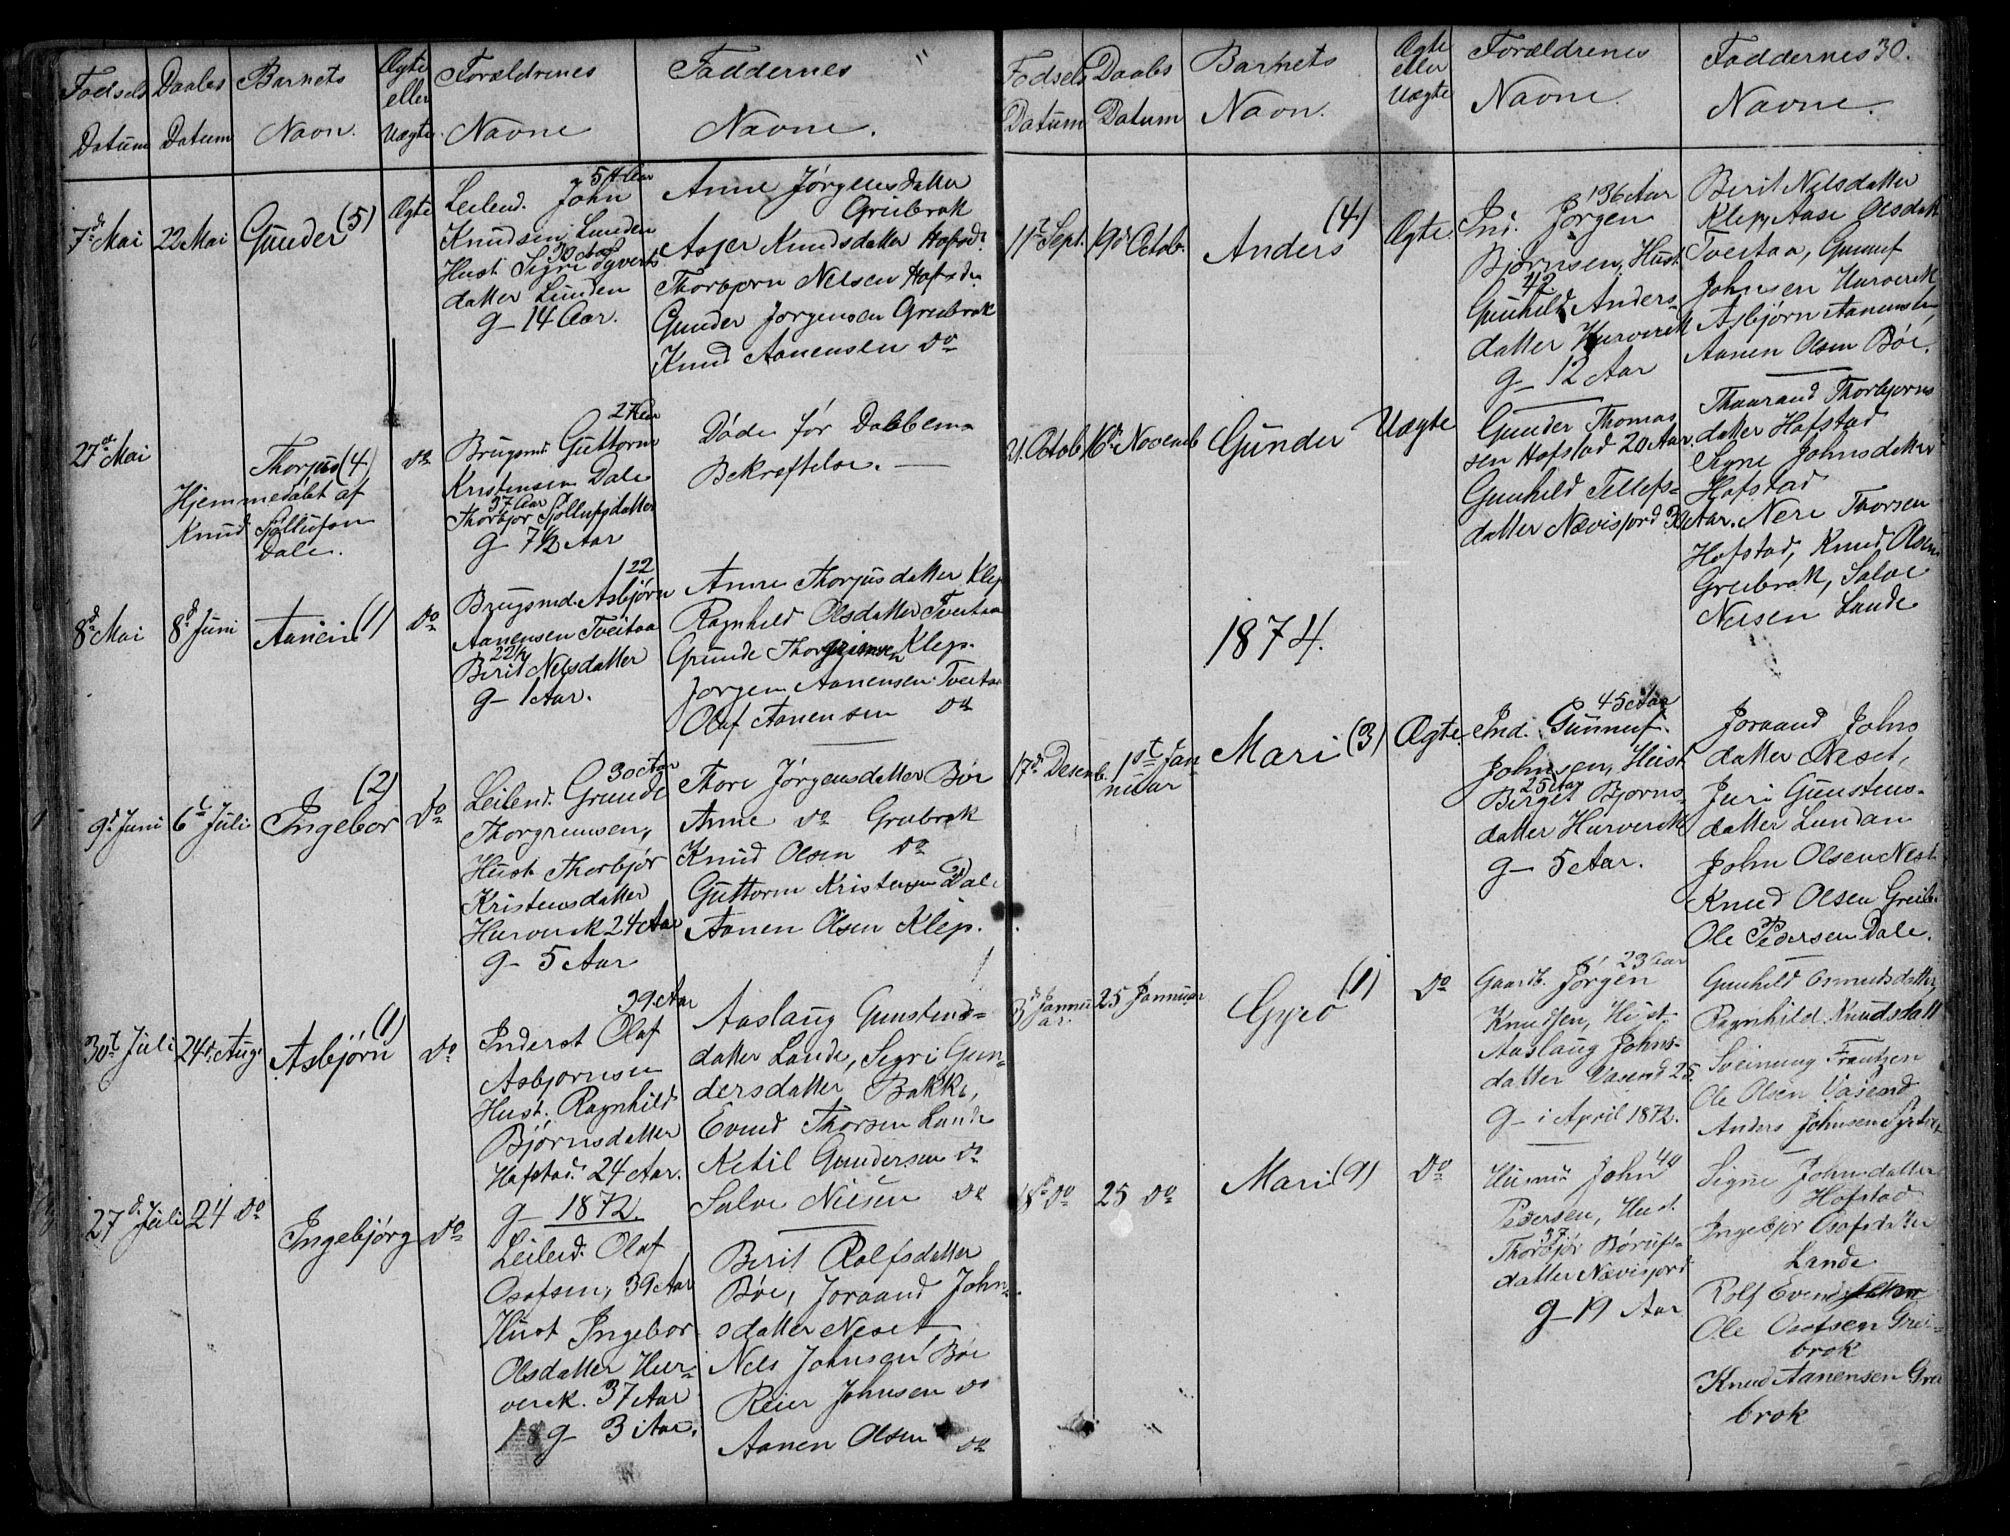 Fødsels Daabs Barnets Ægte Forældrenes Faddernes
eller
Datum Datum Navn. Uægte Navne Navne.
7de Mai 22 Mai Gunder (5) Ægte
54 Aar
Leilend. John
Knudsen Lunden
30 Aar
Hust. Sigri Syverts
datter Lunden
g- 14 Aar.
Anne Jørgensdatter
Greibrok
Asjer Knudsdatter Hofsd.
Thorbjørn Nelsen Hofsd.
Gunder Jørgensen Greibrok
Knud Aanensen do
27de Mai Thorjus (4) do
Hjemmedøbt af
Knud Sjøllufsen
Dale.
27 Aar
Brugsmd. Guttorm
Kristensen Dale
37 Aar
Thorbjør Sjøllufsdatter
g 7½ Aar
Døde før Daabens
Bekræftelse.
8de Mai 8d Juni Aanein (1) do
22
Brugsmd. Asbjørn
Aanensen Tveitaa
22½
Berit Nelsdatter
g- 1 Aar.
Anne Thorjusdatter Klep
Ragnhild Olsdatter Tveitaa
Grunde Thorgrimsen Klep.
Jørgen Aanensen Tveitaa
Olaf Aanensen do
9d Juni 6t Juli Ingebor (2) do
30 Aar
Leilend. Grunde
Thorgremsen,
Hust Thorbjør
Kristensdatter
Hurverk 24 Aar
g- 5 Aar
Thore Jørgensdatter Bøe
Anne do Greibrok
Knud Olsen do
Guttorm Kristensen Dale
Aanen Olsen Klep.
30t Juli 24d Aug. Asbjørn (1) do
39 Aar
Inderst Olaf
Asbjørnsen
Hust. Ragnhild
Bjørnsdatter
Hofstad 24 Aar.
g- 1872.
Aaslaug Gunstens-
datter Lande, Segri Gun-
dersdatter Bakke,
Evend Thorsen Lande
Ketil Gundersen do
Salve Nilsen do
27d Juli 24 do Ingebjørg do
Leilend. Olaf
Osofsen, 39 Aar
Hust Ingebor
Olsdatter Hur-
verk. 37 Aar
18 g- 3 Aar.
Berit Rolfsdatter
Bøe, Joraand John-
sdatter Neset
Nels Johnsen Bøe
Reier Johnsen do
Aanen Olsen do
Fødsels Daabs Barnets Ægte Forældrenes Faddernes 30.
eller
Datum Datum Navn. Uægte Navne. Navne.
11t Sept. 19d Octob. Anders (4) Ægte.
36 Aar
Ind. Jørgen
Bjørnsen, Hust.
42
Gunhild Anders-
datter Hurverk
g- 12 Aar
Berit Nelsdatter
Klep, Aase Olsdatt
Tveitaa, Gunuf
Johnsen Hurverk
Asbjørn Aanensen
Aanen Olsen Bøe.
21. Octob 16d Novemb Gunder Uægte
Gunder Thomas
sen Hofstad 20 Aar.
Gunhild Tellefs-
datter Nævisjord 30 Aar.
Thaarand Thorbjørns
datter Hofstad
Signe Johnsdatter
Hofstad
Nere Thorsen
Hofstad, Knud Olsen
Greibrok, Salve
Nilsen Lande
1874.
17d Desemb. 1st Jan
nuar
Mari (3) Ægte.
45 Aar
Ind. Gunnuf
Johnsen, Hust
25 Aar
Birget Bjørns-
datter Hurverk
g- 5 Aar.
Joraand Johns
datter Neset,
Juri Gunstens-
datter Lundan
John Olsen Nest
Knud Olsen Greib.
Ole Pedersen Dale.
3d Jannu
ar.
25 Januar Gyro (1) do
23 Aar
Gaardb. Jørgen
Knutsen, Hust
Aaslaug Johns-
datter Vasend 25.
g- i April 1872.
Gunhild Osmundsdatter
Ragnhild Knudsdatt
Sveinung Frantzen
Ole Olsen Vasend
Anders Johnsen
18d do 25 do Mari (9) do
44
Husmd John
Pedersen, Hust.
37
Thorbjør Børufs-
datter Nævisjord
g- 19 Aar
Signe Johnsdatter
Hofstad
Ingebjør Osofsdatter
Lande
Rolf Evend
Ole Osofsen Grei-
brok
Knud Aanensen Grei
brok